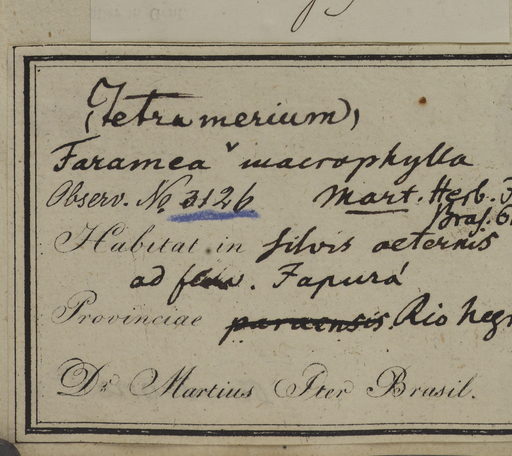 (Tetramerium)
Faramea macrophylla
Observ. No. 3126 Mart. Herb. F
Bras. 6
Habitat in silvis aeternis
ad fluv. Japurá
Provinciae paraensis. Rio Negr
Dr. Martius Iter Brasil.